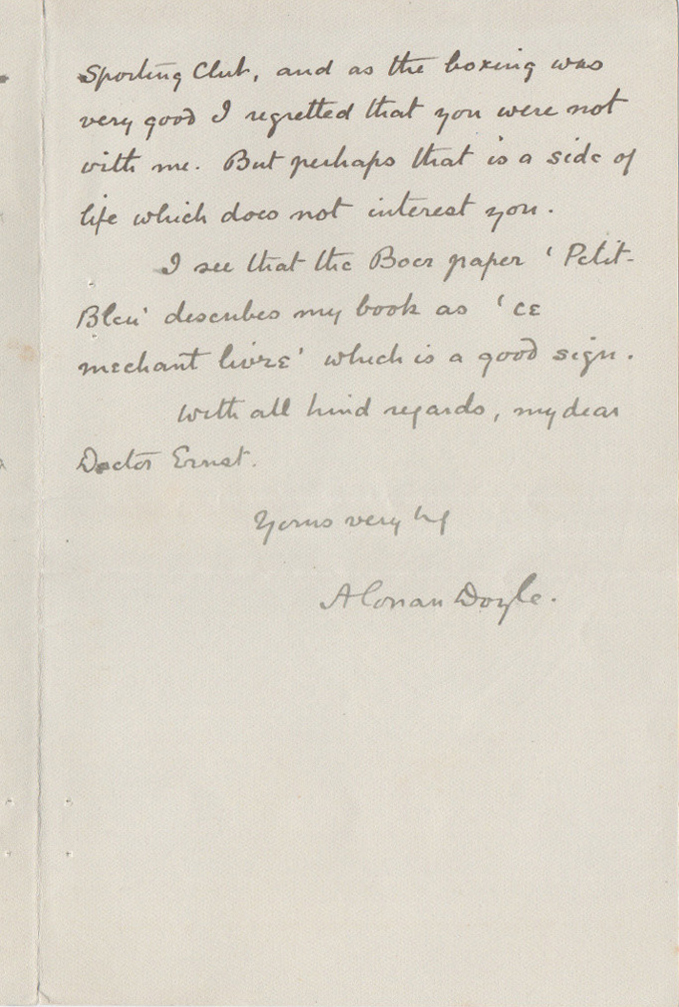 Sporting Club, and as the boxing was
very good I regretted that you were not
with me. But perhaps that is a side of
life which does not interest you.
I see that the Boer paper 'Petit-
Bleu' describes my book as 'ce
mechant livre' which is a good sign.
With all kind regards, my dear
Doctor Ernst.
Yours very
A Conan Doyle.